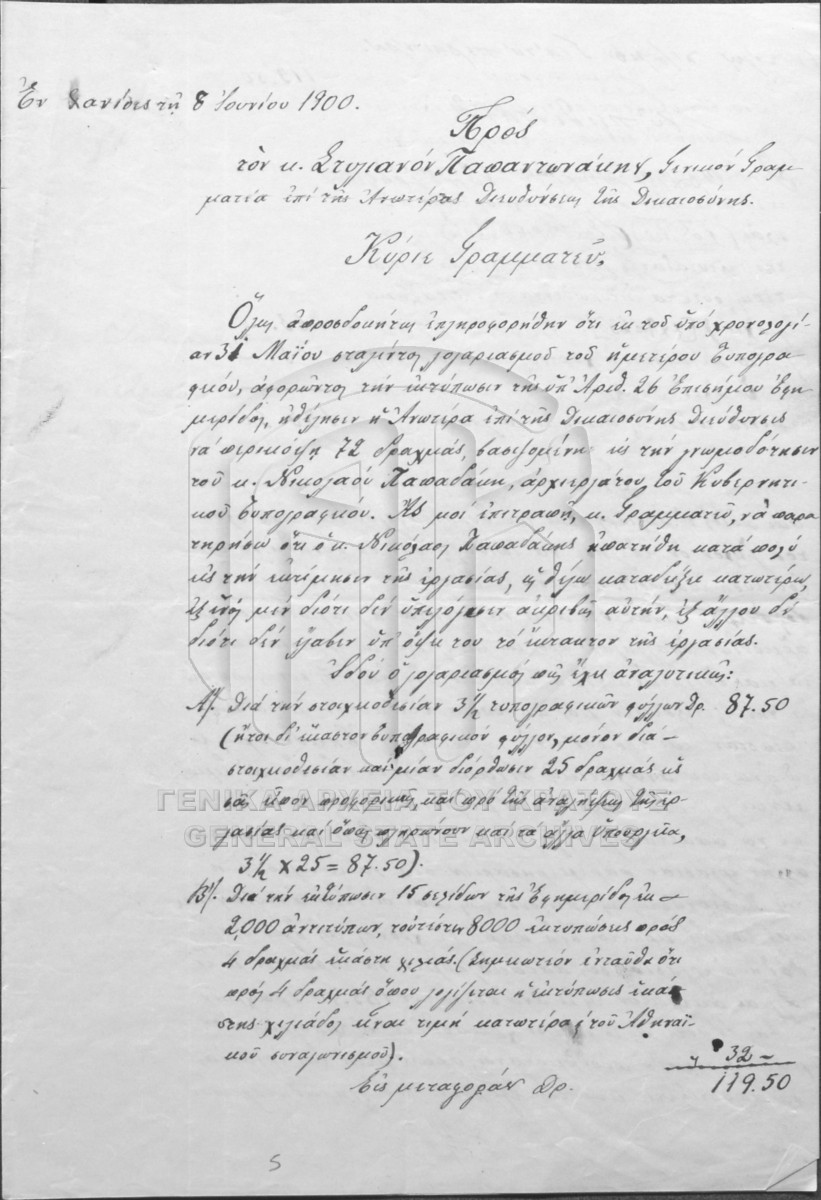 Ἐν Χανίοις τῇ 8 Ἰουνίου 1900.
Πρὸς
τὸν κ. Στυλιανὸν Παπαντωνάκην, Γενικὸν Γραμ-
ματέα ἐπὶ τῆς Ἀνωτέρας Διευθύνσεως τῆς Δικαιοσύνης.
Κύριε Γραμματεῦ,
Ὅλως ἀπροσδοκήτως ἐπληροφορήθην ὅτι ἐκ τοῦ ὑπὸ χρονολογί-
αν 31 Μαΐου σταλέντος λογαριασμοῦ τοῦ ἡμετέρου Τυπογρα-
φείου, ἀφορῶντος τὴν ἐκτύπωσιν τῆς ὑπ' Ἀριθ. 26 Ἐπισήμου Ἐφη-
μερίδος, ἠθέλησεν ἡ Ἀνωτέρα ἐπὶ τῆς Δικαιοσύνης Διεύθυνσις
νὰ περικόψῃ 72 δραχμάς, βασιζομένη εἰς τὴν γνωμοδότησιν
τοῦ κ. Νικολάου Παπαδάκη, ἀρχιεργάτου τοῦ Κυβερνητι-
κοῦ Τυπογραφείου. Ἂς μοὶ ἐπιτραπῇ, κ. Γραμματεῦ, νὰ παρα
τηρήσω ὅτι ὁ κ. Νικόλαος Παπαδάκης ἠπατήθη κατὰ πολὺ
εἰς τὴν ἐκτίμησιν τῆς ἐργασίας, ὡς θέλω καταδείξει κατωτέρω,
ἐξ ἑνὸς μὲν διότι δὲν ὑπελόγισεν ἀκριβῶς αὐτήν, ἐξ ἄλλου δὲ
διότι δὲν ἔλαβεν ὑπ' ὄψει του τὸ ἔκτακτον τῆς ἐργασίας.
Ἰδοὺ ὁ λογαριασμὸς πῶς ἔχει ἀναλυτικῶς:
Α'/. Διὰ τὴν στοιχειοθεσίαν 3 1/2 τυπογραφικῶν φύλλων Δρ. 87.50
(ἤτοι δι' ἕκαστον τυπογραφικὸν φύλλον, μόνον διὰ
στοιχειοθεσίαν καὶ μίαν διόρθωσιν 25 δραχμὰς ὡς
σᾶς εἶπον προφορικῶς, καὶ πρὸ τῆς ἀναλήψεως τῆς ἐρ-
γασίας καὶ ὅπως πληρώνουν καὶ τὰ ἄλλα Ὑπουργεῖα,
3 1/2 × 25 = 87.50).
Β'/. Διὰ τὴν ἐκτύπωσιν 15 σελίδων τῆς Ἐφημερίδος ἐκ
2,000 ἀντιτύπων, τοὐτέστιν 8000 ἐκτυπώσεις πρὸς
4 δραχμὰς ἑκάστη χιλιάς. (Σημειωτέον ἐνταῦθα ὅτι
πρὸς 4 δραχμὰς ὅπου λογίζεται ἡ ἐκτύπωσις ἑκά-
στης χιλιάδος εἶναι τιμὴ κατωτέρα τοῦ Ἀθηναϊ-
κοῦ συναγωνισμοῦ). 32 –
Εἰς μεταφορὰν Δρ. 119.50
5
ΓΕΝΙΚΑ ΑΡΧΕΙΑ ΤΟΥ ΚΡΑΤΟΥΣ
GENERAL STATE ARCHIVES